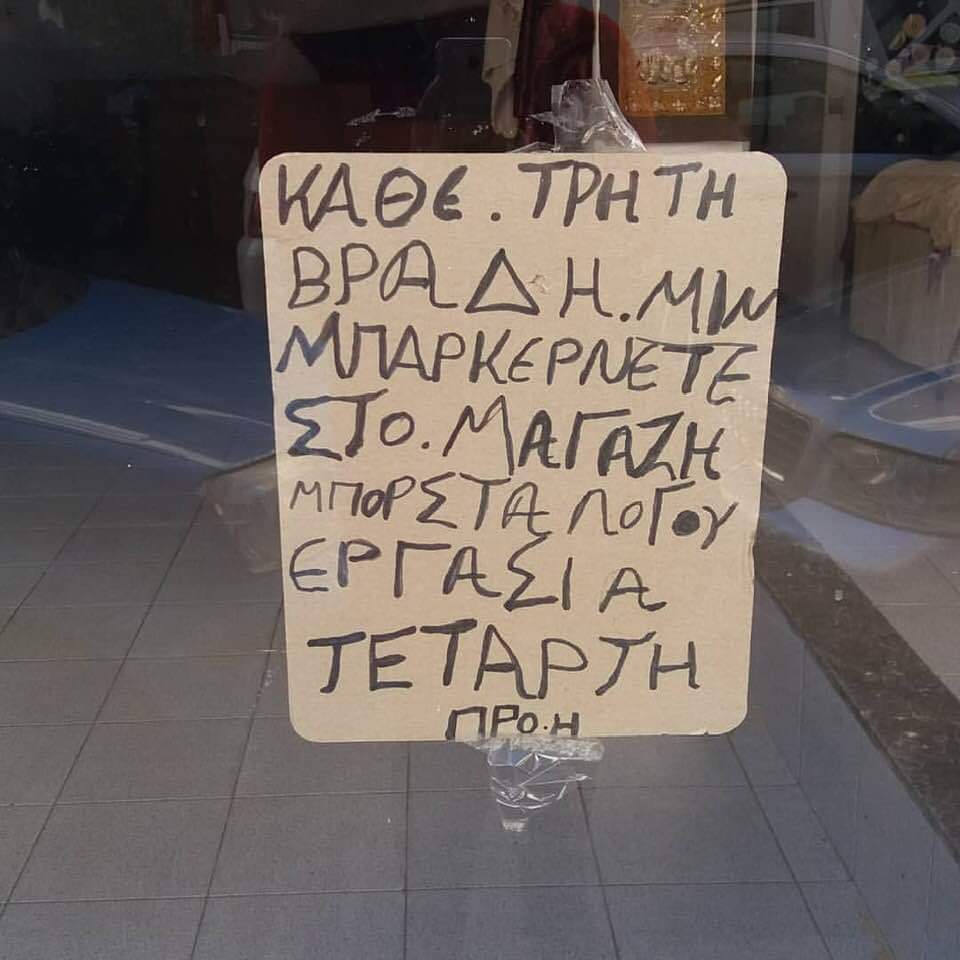 ΚΑΘΕ. ΤΡΗΤΗ
ΒΡΑΔΗ. ΜΙΝ
ΜΠΑΡΚΕΡΝΕΤΕ
ΣΤΟ. ΜΑΓΑΖΗ
ΜΠΟΡΣΤΑ ΛΟΓΟΥ
ΕΡΓΑΣΙΑ
ΤΕΤΑΡΤΗ
ΠΡΟ.Η